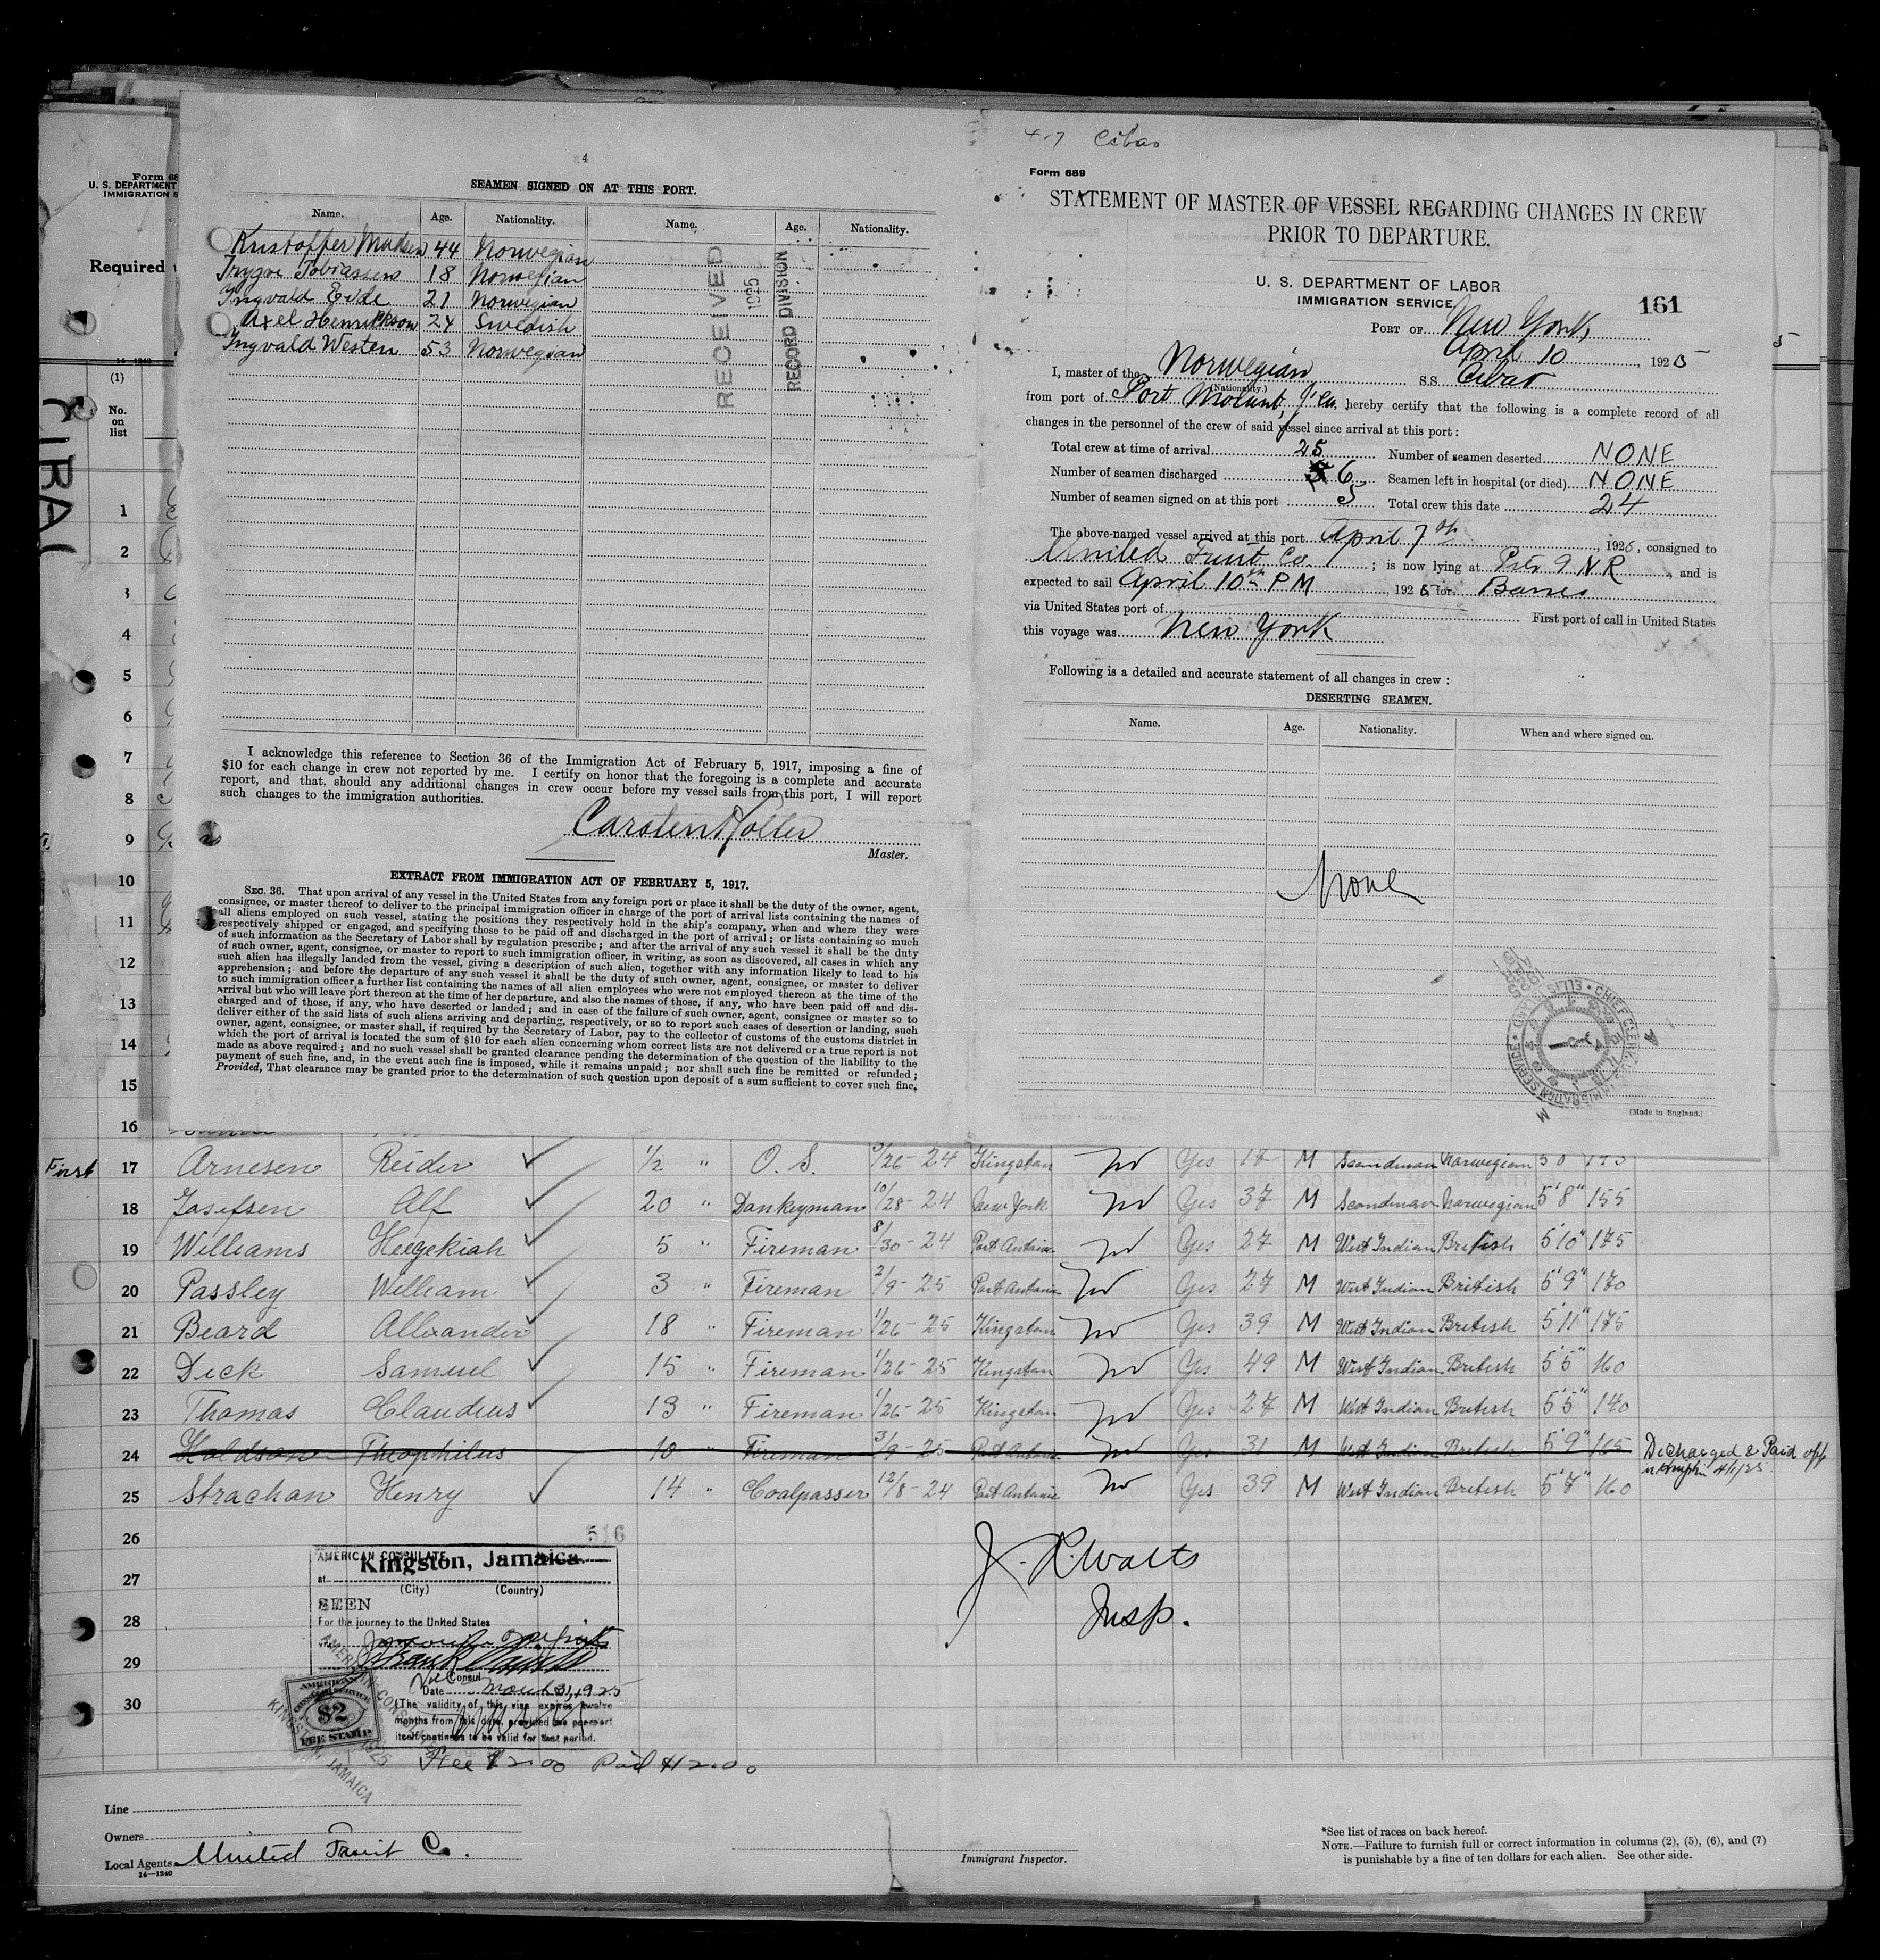 4
SEAMEN SIGNED ON AT THIS PORT.
Name. Age. Nationality. Name. Age. Nationality.
Kristoffer Madsen 44 Norwegian
Trygve Tobiassen 18 Norwegian
Ingvald Eide 21 Norwegian
Axel Henrikson 24 Swedish
Ingvald Westen 53 Norwegian
RECEIVED
1925
RECORD DIVISION
I acknowledge this reference to Section 36 of the Immigration Act of February 5, 1917, imposing a fine of
$10 for each change in crew not reported by me. I certify on honor that the foregoing is a complete and accurate
report, and that, should any additional changes in crew occur before my vessel sails from this port, I will report
such changes to the immigration authorities.
Carsten Holter
Master.
EXTRACT FROM IMMIGRATION ACT OF FEBRUARY 5, 1917.
SEC. 36. That upon arrival of any vessel in the United States from any foreign port or place it shall be the duty of the owner, agent,
consignee, or master thereof to deliver to the principal immigration officer in charge of the port of arrival lists containing the names of
all aliens employed on such vessel, stating the positions they respectively hold in the ship's company, when and where they were
respectively shipped or engaged, and specifying those to be paid off and discharged in the port of arrival; or lists containing so much
of such information as the Secretary of Labor shall by regulation prescribe; and after the arrival of any such vessel it shall be the duty
of such owner, agent, consignee, or master to report to such immigration officer, in writing, as soon as discovered, all cases in which any
such alien has illegally landed from the vessel, giving a description of such alien, together with any information likely to lead to his
apprehension; and before the departure of any such vessel it shall be the duty of such owner, agent, consignee, or master to deliver
to such immigration officer a further list containing the names of all alien employees who were not employed thereon at the time of the
arrival but who will leave port thereon at the time of her departure, and also the names of those, if any, who have been paid off and dis-
charged and of those, if any, who have deserted or landed; and in case of the failure of such owner, agent, consignee or master so to
deliver either of the said lists of such aliens arriving and departing, respectively, or so to report such cases of desertion or landing, such
owner, agent, consignee, or master, shall, if required by the Secretary of Labor, pay to the collector of customs of the customs district in
which the port of arrival is located the sum of $10 for each alien concerning whom correct lists are not delivered or a true report is not
made as above required; and no such vessel shall be granted clearance pending the determination of the question of the liability to the
payment of such fine, and, in the event such fine is imposed, while it remains unpaid; nor shall such fine be remitted or refunded;
Provided, That clearance may be granted prior to the determination of such question upon deposit of a sum sufficient to cover such fine.
4-7 Cibao
Form 689
STATEMENT OF MASTER OF VESSEL REGARDING CHANGES IN CREW
PRIOR TO DEPARTURE.
U. S. DEPARTMENT OF LABOR
IMMIGRATION SERVICE
161
PORT OF New York,
April 10, 1925
I, master of the Norwegian S.S. Cibao
(Nationality.)
from port of Port Morant, J'ca, hereby certify that the following is a complete record of all
changes in the personnel of the crew of said vessel since arrival at this port:
Total crew at time of arrival 25 Number of seamen deserted NONE
Number of seamen discharged 6 Seamen left in hospital (or died) NONE
Number of seamen signed on at this port 5 Total crew this date 24
The above-named vessel arrived at this port April 7th, 1925, consigned to
United Fruit Co; is now lying at Pier 9 NR, and is
expected to sail April 10th PM, 1925, for Banes
via United States port of First port of call in United States
this voyage was New York
Following is a detailed and accurate statement of all changes in crew:
DESERTING SEAMEN.
Name. Age. Nationality. When and where signed on.
None
(Made in England.)
Form 68
U. S. DEPARTMENT
IMMIGRATION S
Required
14-1240
(1)
No.
on
list
1
2
3
4
5
6
7
8
9
10
11
12
13
14
15
16
First 17 Arnesen Reider 1/2 " O. S. 9/26-24 Kingston No Yes 17 M Scandinav Norwegian
18 Josefsen Alf 20 " Donkeyman 10/28-24 New York No Yes 37 M Scandinav Norwegian 5'8" 155
19 Williams Hezekiah 5 " Fireman 8/30-24 Port Antonio No Yes 27 M West Indian British 5'10" 175
20 Passley William 3 " Fireman 2/9-25 Port Antonio No Yes 27 M West Indian British 5'9" 170
21 Beard Allexander 18 " Fireman 1/26-25 Kingston No Yes 39 M West Indian British 5'11" 175
22 Dick Samuel 15 " Fireman 1/26-25 Kingston No Yes 49 M West Indian British 5'5" 160
23 Thomas Claudius 13 " Fireman 1/26-25 Kingston No Yes 27 M West Indian British 5'5" 140
24 Holdson Theophilus 10 " Fireman 3/9-25 Port Antonio No Yes 31 M West Indian British 5'9" 165 Discharged & Paid off
in Kingston 4/1/25
25 Strachan Henry 14 " Coalpasser 12/8-24 Port Antonio No Yes 39 M West Indian British 5'7" 160
26
27
28
29
30
516
AMERICAN CONSULATE
at Kingston, Jamaica
(City) (Country)
SEEN
For the journey to the United States
Vice Consul
Date March 31, 1925
(The validity of this visa expires twelve
months from this date, provided the passport
itself continues to be valid for that period.
AMERICAN CONSULAR SERVICE
$2
FEE STAMP
KINGSTON, JAMAICA
Fee $2.00 Paid $2.00
J. R. Watts
Insp.
Line
Owners
Local Agents United Fruit Co.
14-1240
Immigrant Inspector.
*See list of races on back hereof.
NOTE.—Failure to furnish full or correct information in columns (2), (5), (6), and (7)
is punishable by a fine of ten dollars for each alien. See other side.